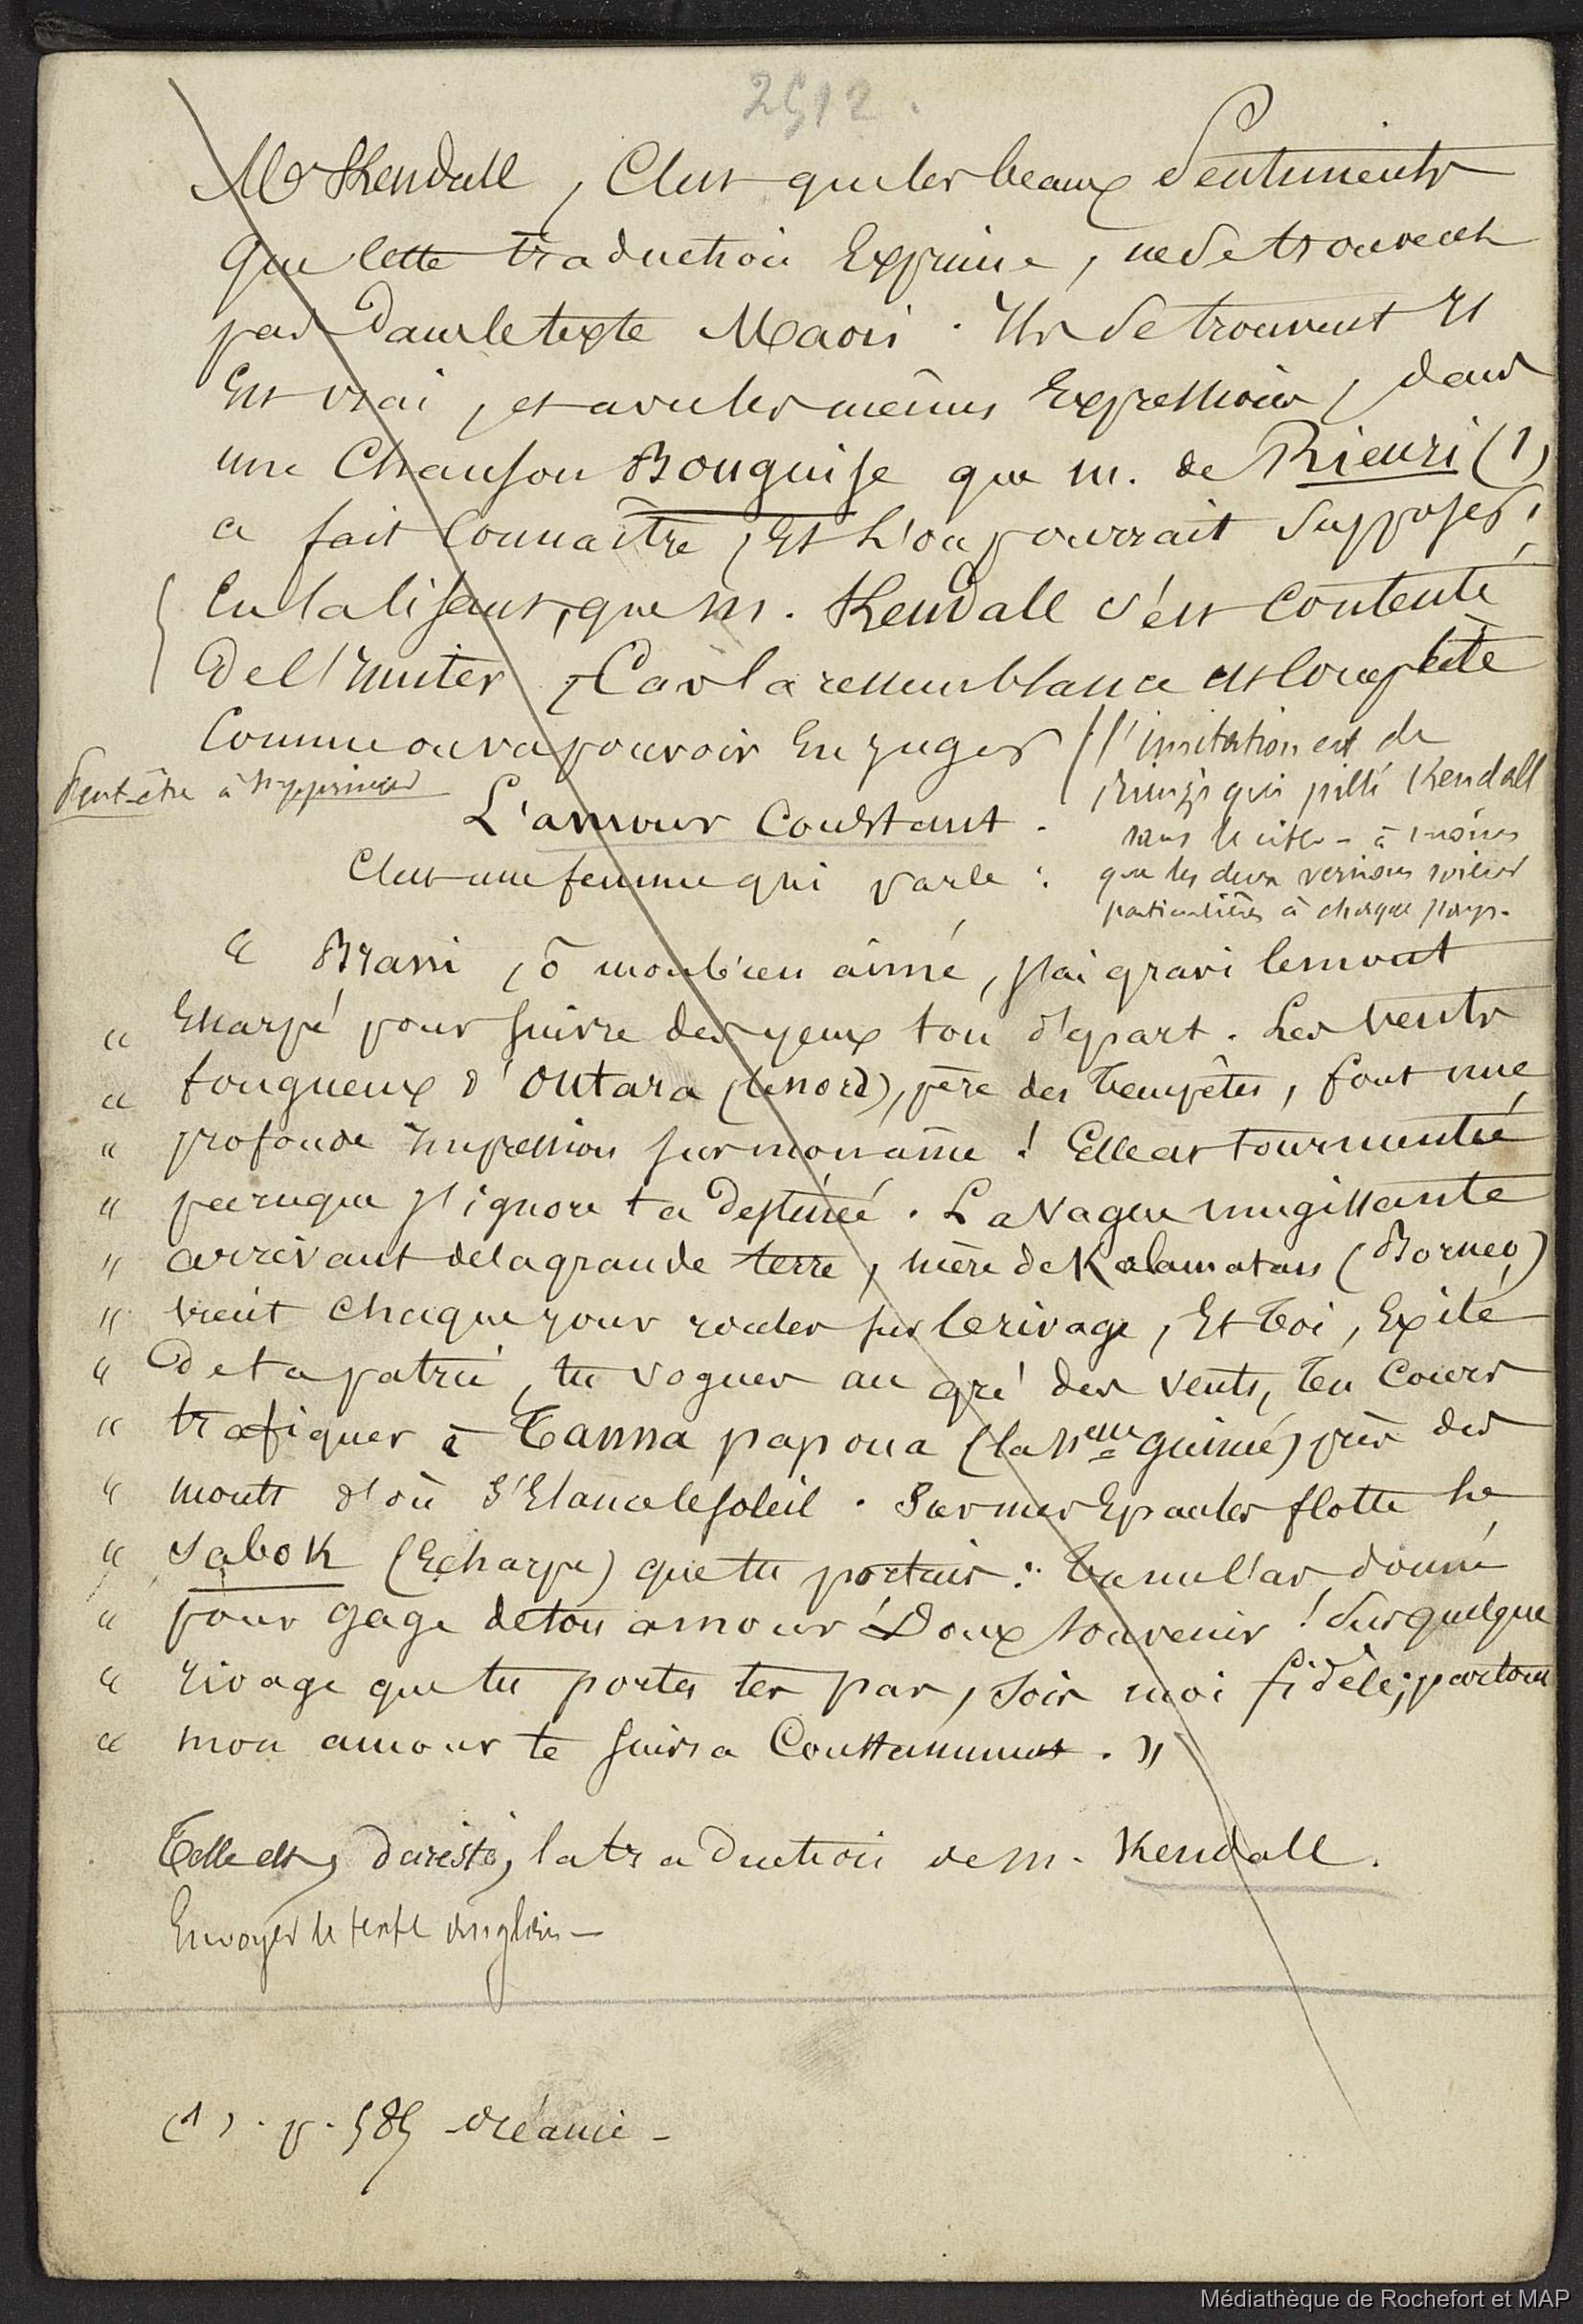 2512.
Mr Kendall, C'est que les beaux Sentiments
que cette traduction Exprime, ne se trouvent
pas dans le texte Maori. Ils se trouvent Il
Est vrai, et avec les mêmes Expressions, dans
une Chanson Bouguise que M. de Rienzi (1)
a fait Connaître, Et l'on pourrait Supposer,
En la lisant, que M. Kendall s'est Contenté
de l'Imiter, Car la ressemblance est Complète
Comme on va pouvoir En juger
(l'imitation est de
rienzi qui pille Kendall
sans le citer - à moins
que les deux versions soient
particulières à chaque pays.
Peut-être à supprimer
L'amour Constant.
C'est une femme qui parle :
" Brani, ô mon bien aimé, j'ai gravi le mont
" Escarpé pour suivre des yeux ton départ. Les Vents
" fougueux d'Outara (le nord), père des tempêtes, font une
" profonde Impression sur mon âme ! Elle est tourmentée
" parceque j'ignore ta destinée. La Vague mugissante
" arrivant de la grande terre, mère de Kalamatan (Borneo)
" vient chaque jour rouler sur le rivage, Et toi, Exilé
" de ta patrie, tu vogues au gré des vents, tu Cours
" trafiquer à Tanna papoua (la Nelle guinée) près des
" monts d'où S'Elance le soleil. Sur mes Epaules flotte le
" sabok (Echarpe) que tu portais : tu me l'as donné
" pour gage de ton amour ! Doux souvenir ! Sur quelque
" rivage que tu portes tes pas, sois moi fidèle ; partout
" mon amour te suivra Constamment. "
Telle est, du reste, la traduction de M. Kendall.
Envoyer le texte anglais -
(1). p. 585 Océanie -
Médiathèque de Rochefort et MAP